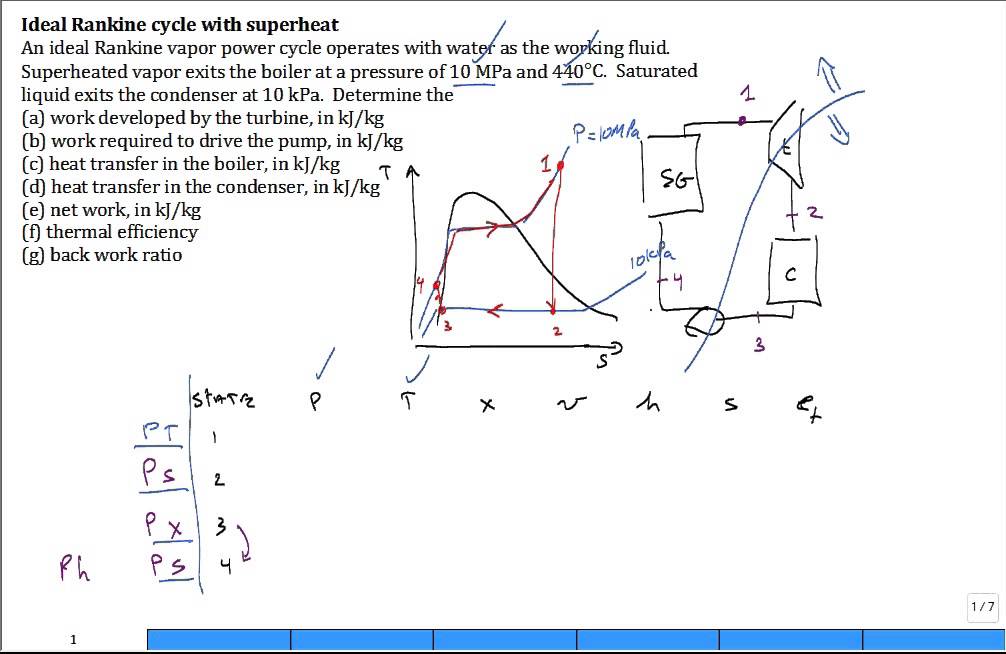 Ideal Rankine cycle with superheat
An ideal Rankine vapor power cycle operates with water as the working fluid.
Superheated vapor exits the boiler at a pressure of 10 MPa and 440°C. Saturated
liquid exits the condenser at 10 kPa. Determine the
(a) work developed by the turbine, in kJ/kg
(b) work required to drive the pump, in kJ/kg
(c) heat transfer in the boiler, in kJ/kg
(d) heat transfer in the condenser, in kJ/kg
(e) net work, in kJ/kg
(f) thermal efficiency
(g) back work ratio
T
P=10MPa
1
10kPa
4
3
2
S
1
SG
t
2
4
C
3
STATE P T x v h s ef
PT 1
Ps 2
Px 3
Ph Ps 4
1/7
1